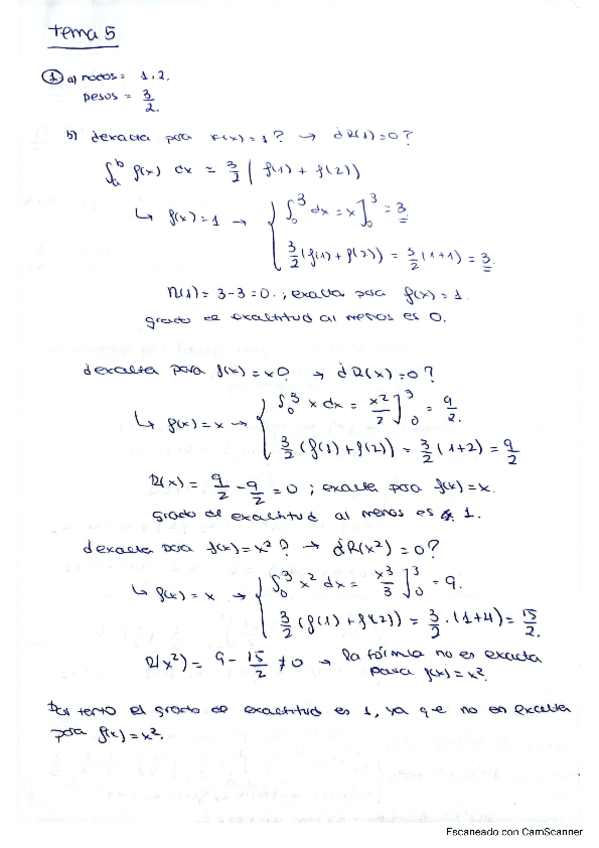 tema 5
① a) nodos: 1, 2.
pesos = 3/2.
b) ¿exacta para f(x)=1? → ¿R(1)=0?
∫ₐᵇ f(x) dx = 3/2 (f(1) + f(2))
↳ f(x)=1 → { ∫₀³ dx = x]₀³ = 3
3/2 (f(1) + f(2)) = 3/2 (1+1) = 3
R(1) = 3-3=0. ; exacta para f(x)=1.
grado de exactitud al menos es 0.
¿exacta para f(x)=x? → ¿R(x)=0?
↳ f(x)=x → { ∫₀³ x dx = x²/2]₀³ = 9/2.
3/2 (f(1) + f(2)) = 3/2 (1+2) = 9/2
R(x) = 9/2 - 9/2 = 0 ; exacta para f(x)=x.
grado de exactitud al menos es 1.
¿exacta para f(x)=x²? → ¿R(x²)=0?
↳ f(x)=x → { ∫₀³ x² dx = x³/3]₀³ = 9.
3/2 (f(1) + f(2)) = 3/2 · (1+4) = 15/2.
R(x²) = 9 - 15/2 ≠ 0 → la fórmula no es exacta
para f(x)=x².
Por tanto el grado de exactitud es 1, ya que no es exacta
para f(x)=x².
Escaneado con CamScanner